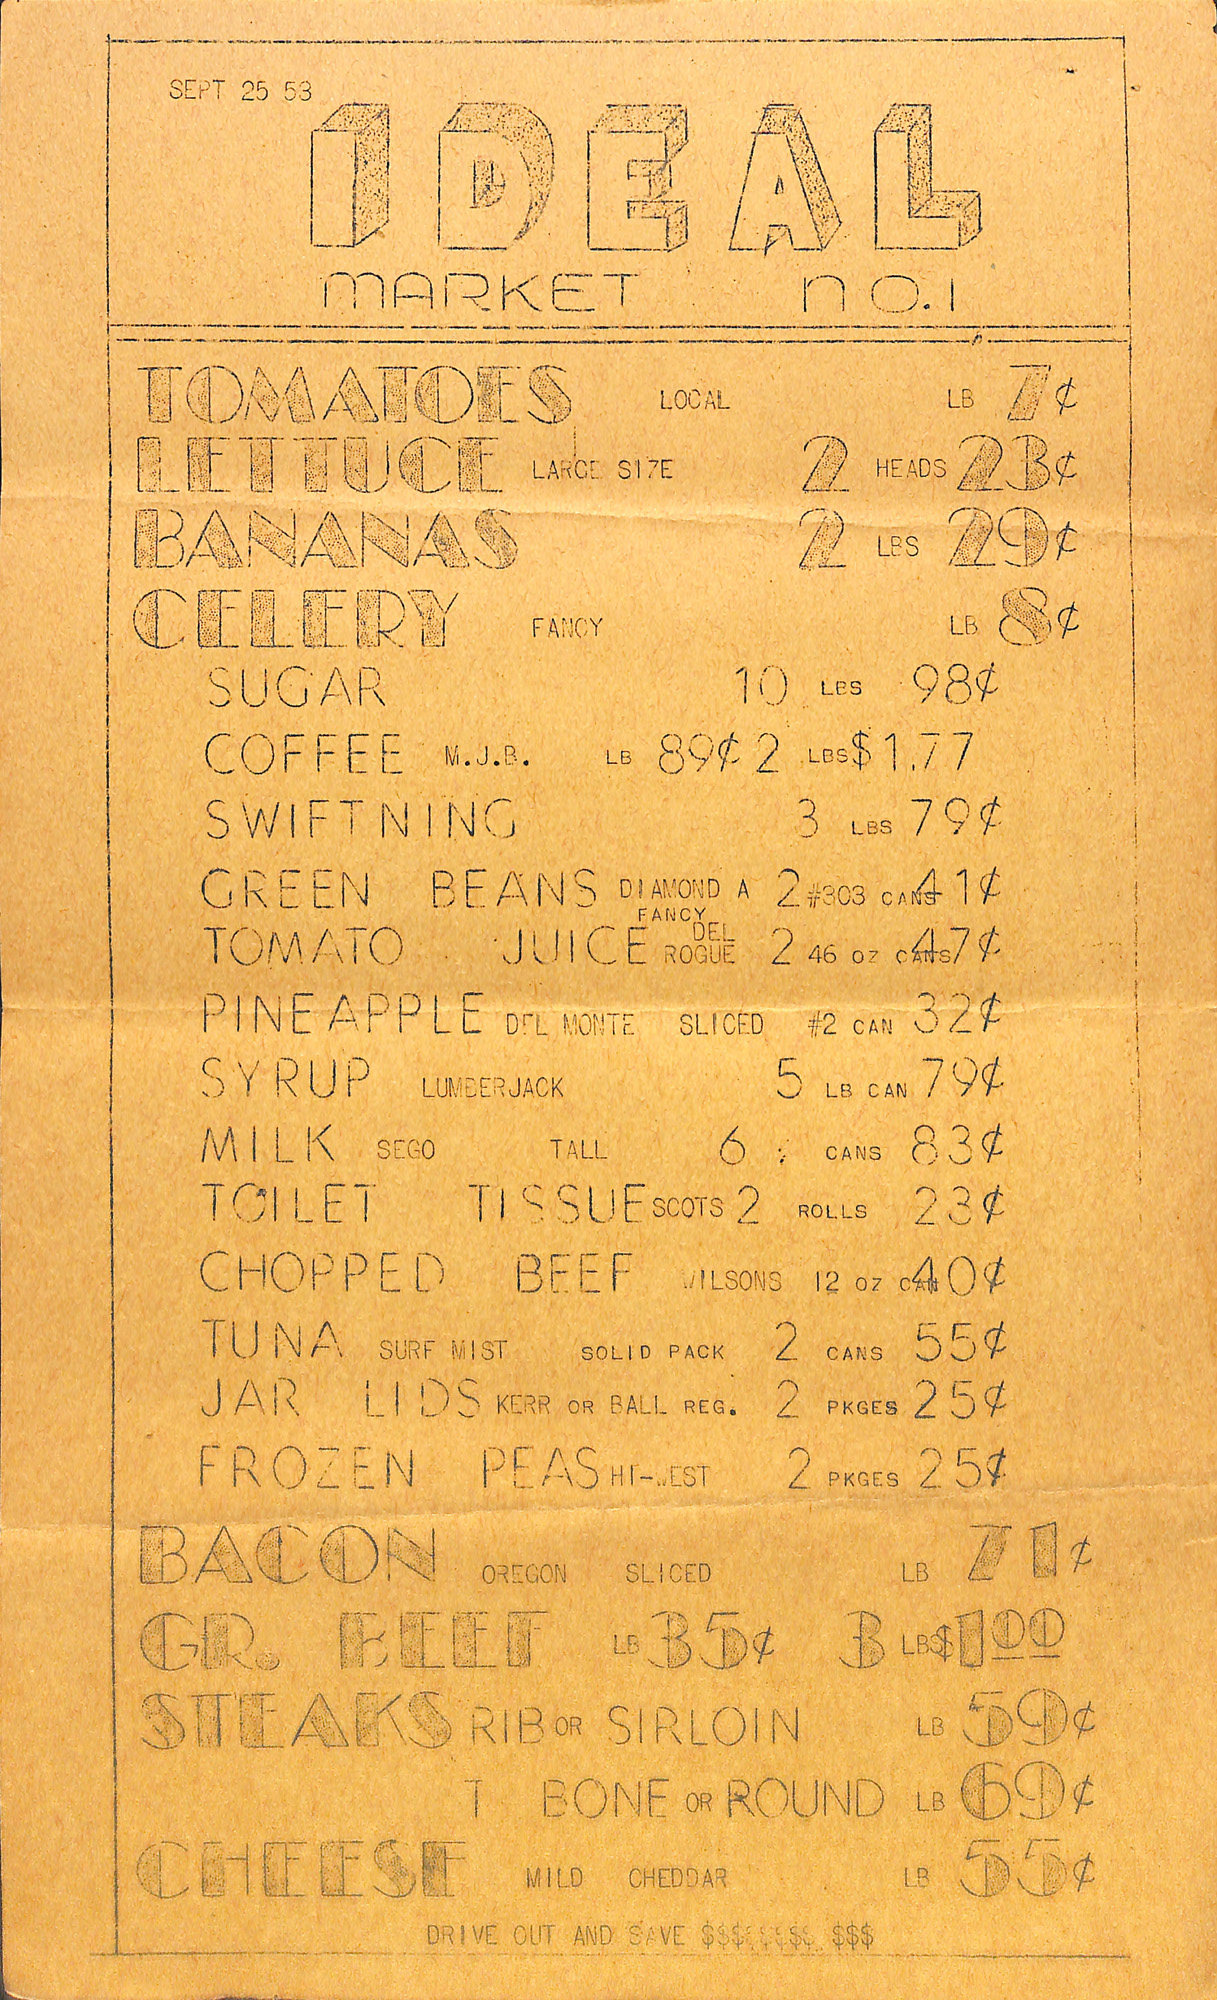 SEPT 25 53
IDEAL
MARKET NO.1
TOMATOES LOCAL LB 7¢
LETTUCE LARGE SIZE 2 HEADS 23¢
BANANAS 2 LBS 29¢
CELERY FANCY LB 8¢
SUGAR 10 LBS 98¢
COFFEE M.J.B. LB 89¢ 2 LBS $1.77
SWIFTNING 3 LBS 79¢
GREEN BEANS DIAMOND A 2 #303 CANS 41¢
TOMATO JUICE FANCY DEL ROGUE 2 46 OZ CANS 47¢
PINEAPPLE DEL MONTE SLICED #2 CAN 32¢
SYRUP LUMBERJACK 5 LB CAN 79¢
MILK SEGO TALL 6 CANS 83¢
TOILET TISSUE SCOTS 2 ROLLS 23¢
CHOPPED BEEF WILSONS 12 OZ CAN 40¢
TUNA SURF MIST SOLID PACK 2 CANS 55¢
JAR LIDS KERR OR BALL REG. 2 PKGES 25¢
FROZEN PEAS HI-WEST 2 PKGES 25¢
BACON OREGON SLICED LB 71¢
GR. BEEF LB 35¢ 3 LBS $1.00
STEAKS RIB OR SIRLOIN LB 59¢
T BONE OR ROUND LB 69¢
CHEESE MILD CHEDDAR LB 55¢
DRIVE OUT AND SAVE $$$$$$$$ $$$